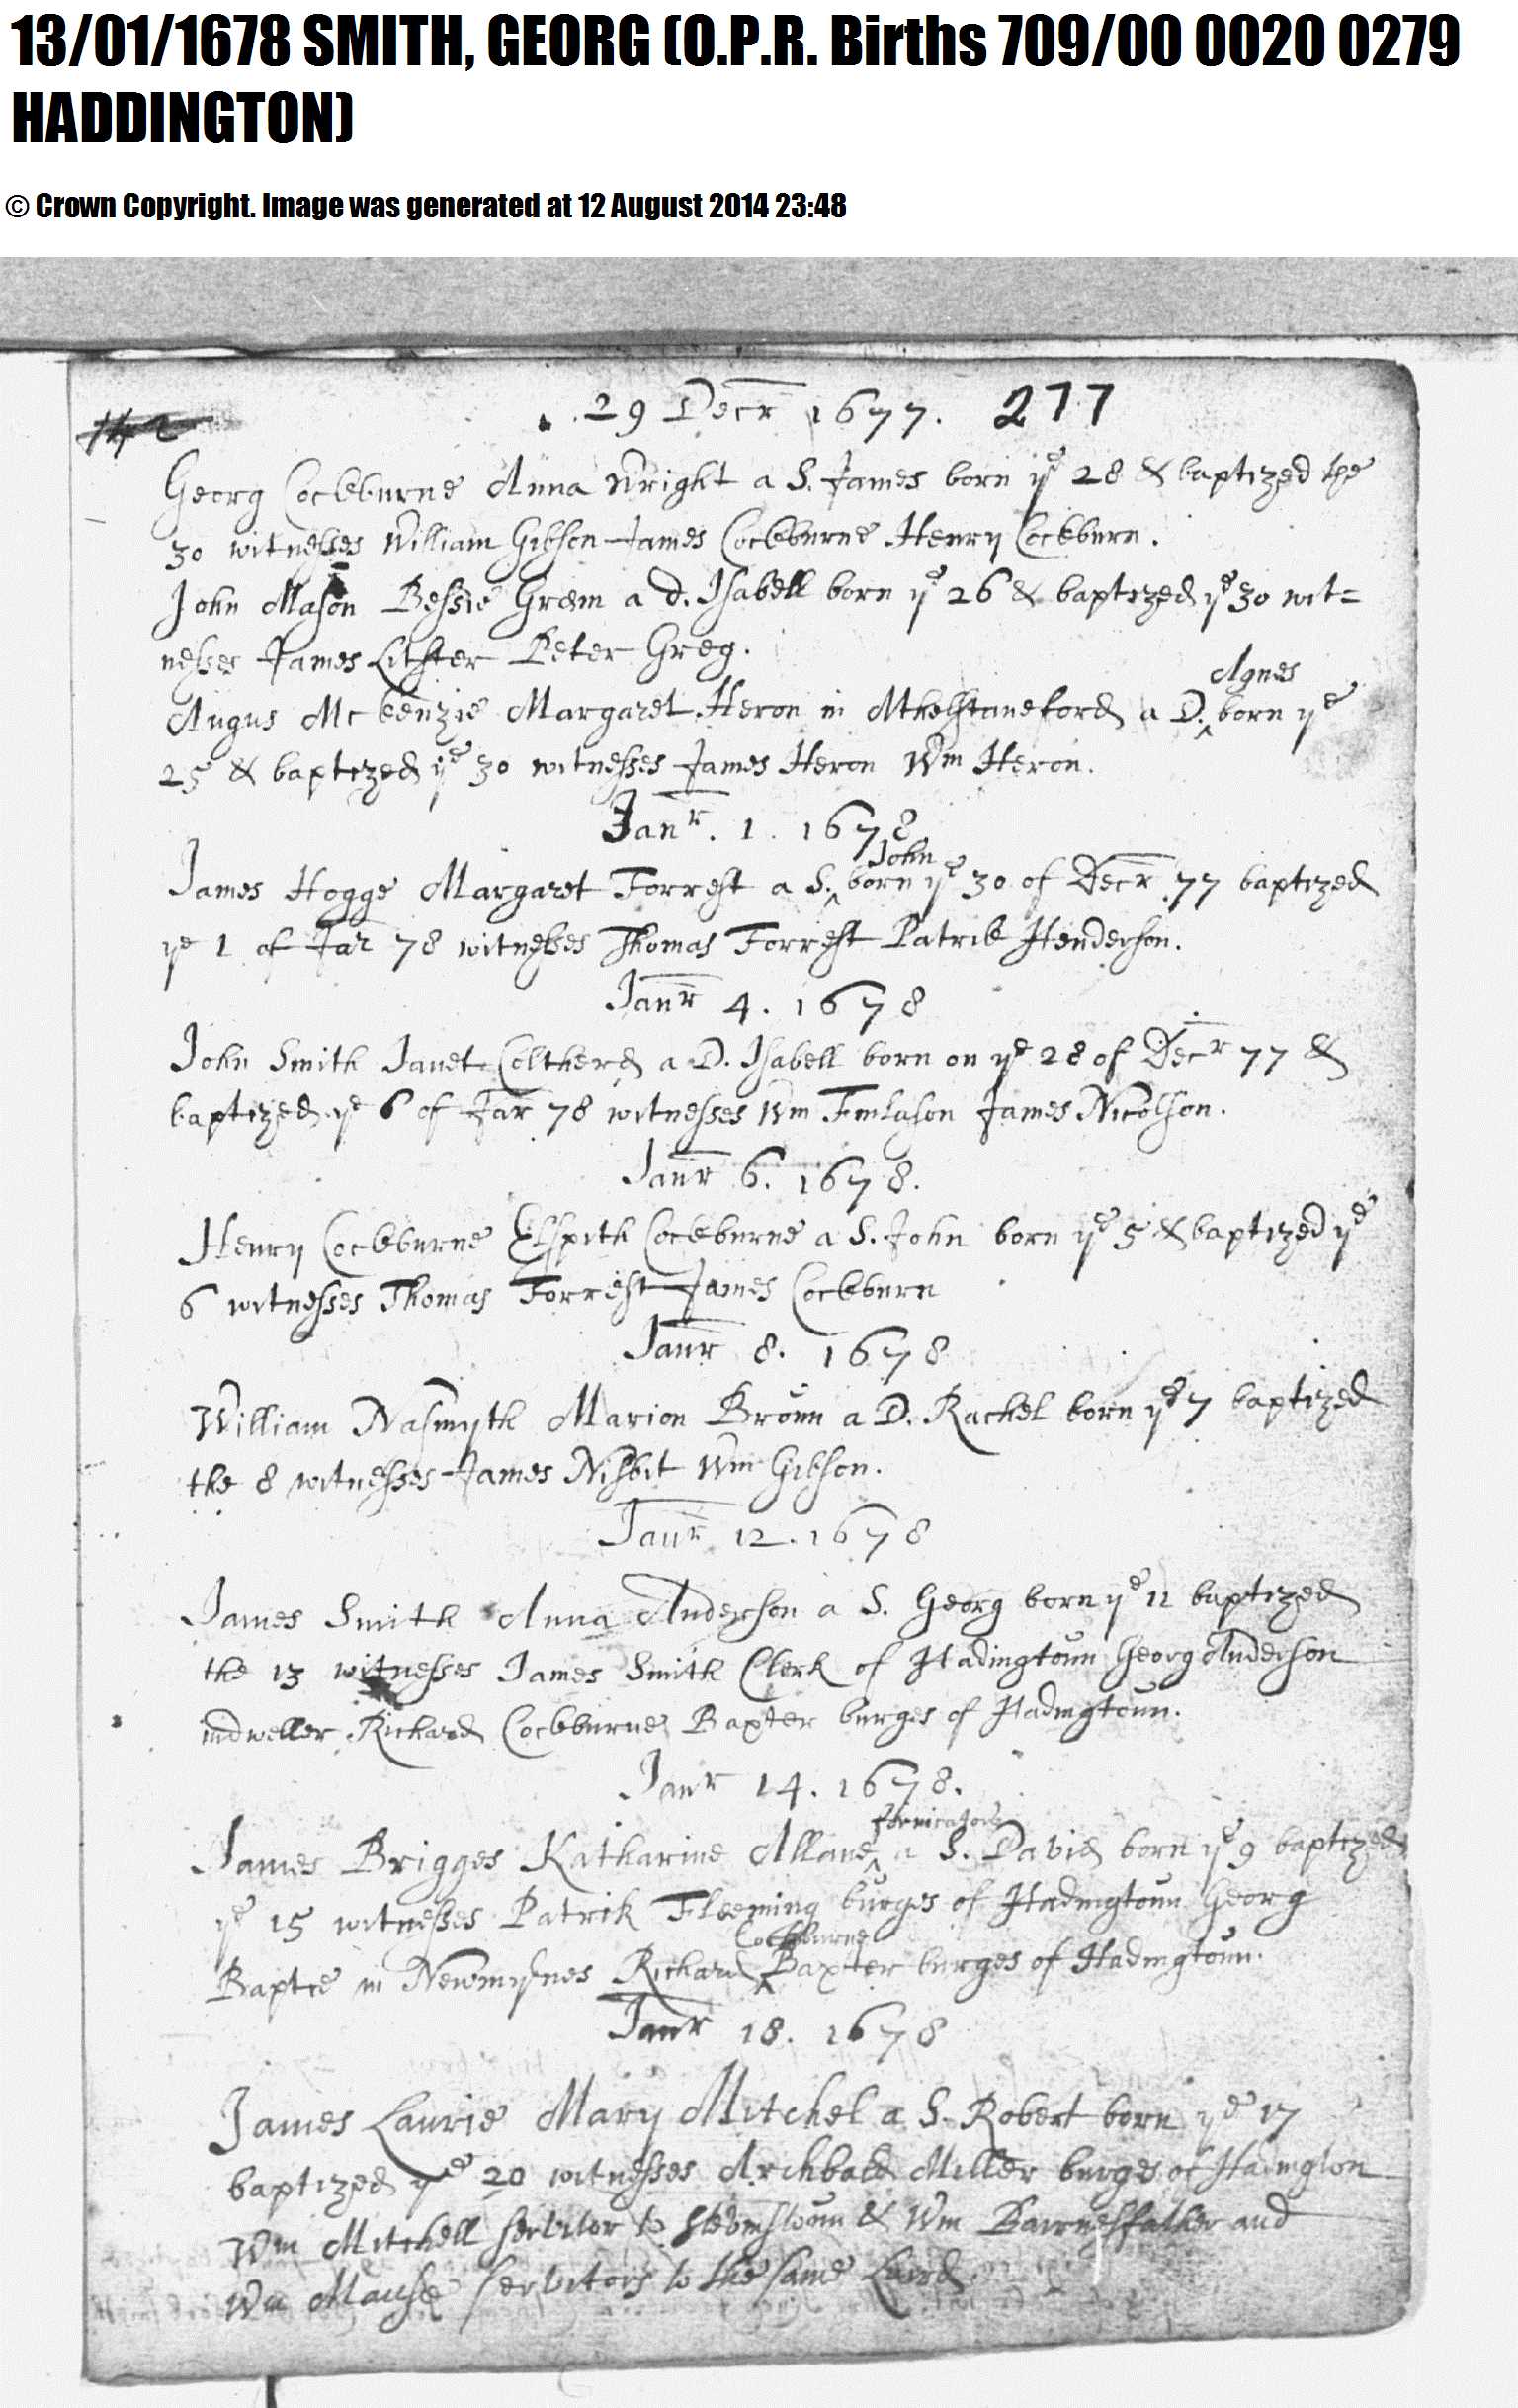 13/01/1678 SMITH, GEORG (O.P.R. Births 709/00 0020 0279
HADDINGTON)
© Crown Copyright. Image was generated at 12 August 2014 23:48
142
29 Decr 1677. 277
Georg Cockburne Anna Wright a S. James born ye 28 & baptized the
30 witnesses William Gibson James Cockburne Henry Cockburn.
John Mason Bessie Græm a d. Isabell born ye 26 & baptized ye 30 wit=
nesses James Lister Peter Greg.
Agnes
Angus Mckenzie Margaret Heron in Athelstaneford a D. ‸ born ye
25 & baptized ye 30 witnesses James Heron Wm Heron.
Janr. 1. 1678
John
James Hogge Margaret Forrest a S. ‸ born ye 30 of Decr 77 baptized
ye 1 of Jar 78 witnesses Thomas Forrest Patrik Henderson.
Janr 4. 1678
John Smith Janet Coltherd a D. Isabell born on ye 28 of Decr 77 &
baptized ye 6 of Jar 78 witnesses Wm Finlason James Nicolson.
Janr 6. 1678.
Henry Cockburne Elspith Cockburne a S. John born ye 5 & baptized ye
6 witnesses Thomas Forrest James Cockburn
Janr 8. 1678
William Nasmyth Marion Broun a D. Rachel born ye 7 baptized
the 8 witnesses James Nisbit Wm Gibson.
Janr 12. 1678
James Smith Anna Anderson a S. Georg born ye 11 baptized
the 13 witnesses James Smith Clerk of Hadingtoun Georg Anderson
indweller Richard Cockburne Baxter burges of Hadingtoun.
Janr 14. 1678.
fornicators
James Brigges Katharine Allane ‸ a S. David born ye 9 baptized
ye 15 witnesses Patrik Fleeming burges of Hadingtoun Georg
Cockburne
Baptie in Newmynes Richard ‸ Baxter burges of Hadingtoun.
Janr 18. 1678
James Laurie Mary Mitchel a S. Robert born ye 17
baptized ye 20 witnesses Archbald Miller burges of Hadington
Wm Mitchell servitor to & Wm Bairnesfather and
Wm Mause servitors to the same Laird.